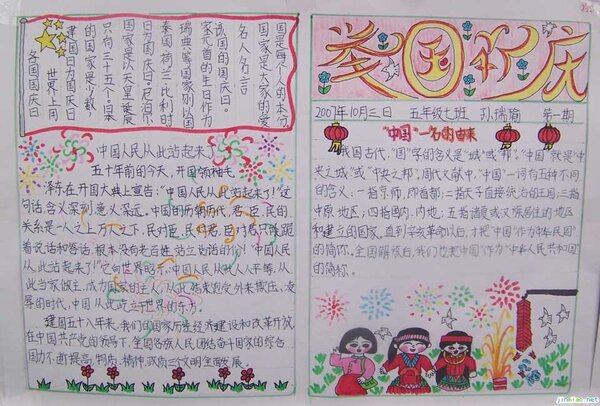 举国欢庆
2007年10月三日 五年级七班 孙瑞瑜 第一期
"中国"一名的由来
我国古代,"国"字的含义是"城"或"邦"。"中国"就是"中
央之城"或"中央之邦"。周代文献中,"中国"一词有五种不同
的含义:一指京师,即首都;二指天子直接统治的王国;三指
中原地区;四指国内、内地;五指诸夏或汉族居住的地区
和建立的国家。直到辛亥革命以后,才把"中国"作为"中华民国"
的简称。全国解放后,我们也把"中国"作为"中华人民共和国"
的简称。
各国国庆日
世界上用
建国日为国庆日
的国家是少数,
只有三十五个。某
国家是以天皇诞辰
日为国庆日。尼泊尔
泰国荷兰比利时
瑞典等国家则以国
家元首的生日作为
该国的国庆日。
名人名言
国家是大家的,爱
国是每个人的本分
中国人民从此站起来了
五十年前的今天,开国领袖毛
泽东在开国大典上宣告:"中国人民从此站起来了!"这
句话含义深刻,意义深远。中国的历朝历代,君、臣、民的
关系是一人之上万人之下,民对臣、民对君、臣对君只能跪
着说话和答话,根本没有老百姓站立说话的
从此站起来了!"它向世界昭示:中国人民从此人人平等,从
此当家做主,成为国家的主人,从此结束饱受外来欺压、凌
辱的时代,中国从此屹立于世界的东方。
建国五十八年来,我们的国家历经经济建设和改革开放,
在中国共产党的领导下,全国各族人民团结奋斗国家的综合
国力不断提高,物质、精神、政治三个文明全面发展。